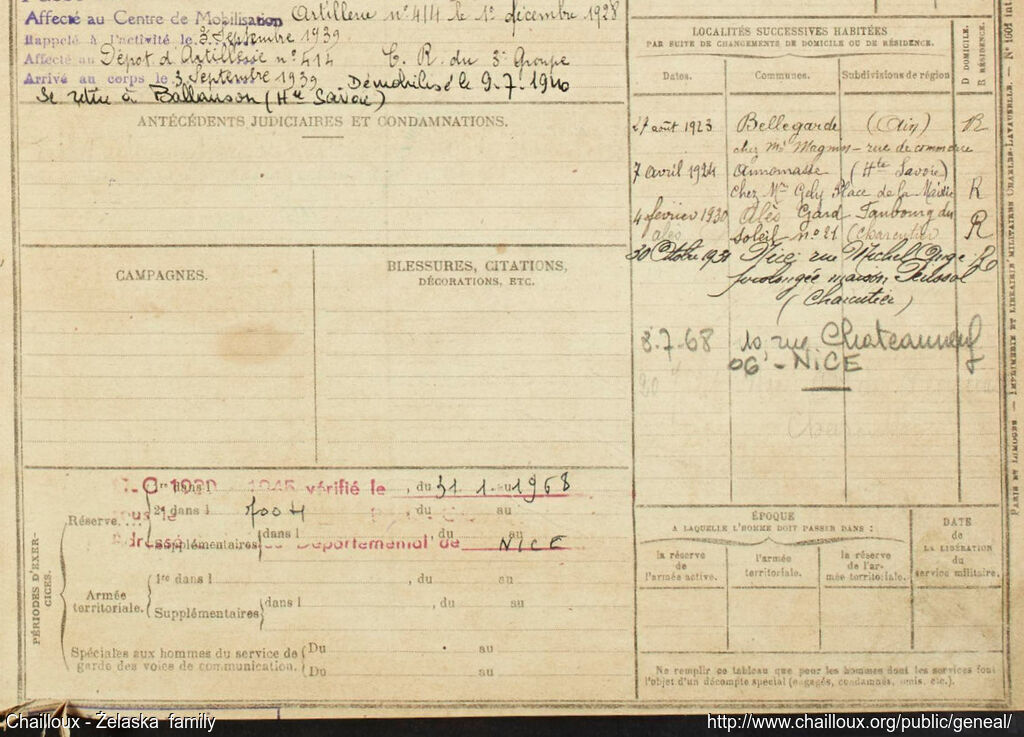 Affecté au Centre de Mobilisation Artillerie n° 414 le 1° décembre 1928
Rappelé à l'activité le 3 Septembre 1939
Affecté au Dépot d'Artillerie n° 414 C. R. du 3° Groupe
Arrivé au corps le 3 Septembre 1939 Démobilisé le 9.7.1940
Se retire à Ballanson (Hte Savoie)
ANTÉCÉDENTS JUDICIAIRES ET CONDAMNATIONS.
CAMPAGNES.
BLESSURES, CITATIONS,
DÉCORATIONS, ETC.
PÉRIODES D'EXER-
CICES.
1945 vérifié le , du 31.1.au 1968
Réserve... 2e dans l 700 H , du au
Supplémentaires dans l , du au
Départemental de NICE
Armée
territoriale.
1re dans l , du au
Supplémentaires dans l , du au
Spéciales aux hommes du service de
garde des voies de communication.
Du au
Du au
LOCALITÉS SUCCESSIVES HABITÉES
PAR SUITE DE CHANGEMENTS DE DOMICILE OU DE RÉSIDENCE.
D DOMICILE.
R RÉSIDENCE.
Dates. Communes. Subdivisions de région
août 1923 Bellegarde (Ain) R
chez Mr Magnin - rue de commerce
7 avril 1924 Annemasse (Hte Savoie)
chez Mr Gely Place de la Mairie R
4 février 1930 Alès Gard Faubourg du
soleil n° 21 (Charcutier) R
30 Octobre 1931 Nice rue Michel Ange R
prolongée maison
(Charcutier)
8.7-68 10 rue Chateauneuf
06 - NICE
ÉPOQUE
A LAQUELLE L'HOMME DOIT PASSER DANS :
la réserve
de
l'armée active.
l'armée
territoriale.
la réserve
de l'ar-
mée territoriale.
DATE
de
LA LIBÉRATION
du
service militaire.
Ne remplir ce tableau que pour les hommes dont les services font
l'objet d'un décompte spécial (engagés, condamnés, omis, etc.).
PARIS ET LIMOGES. — IMPRIMERIE ET LIBRAIRIE MILITAIRES CHARLES-LAVAUZELLE. — N° 1601
Chailloux - Żelaska family
http://www.chailloux.org/public/geneal/